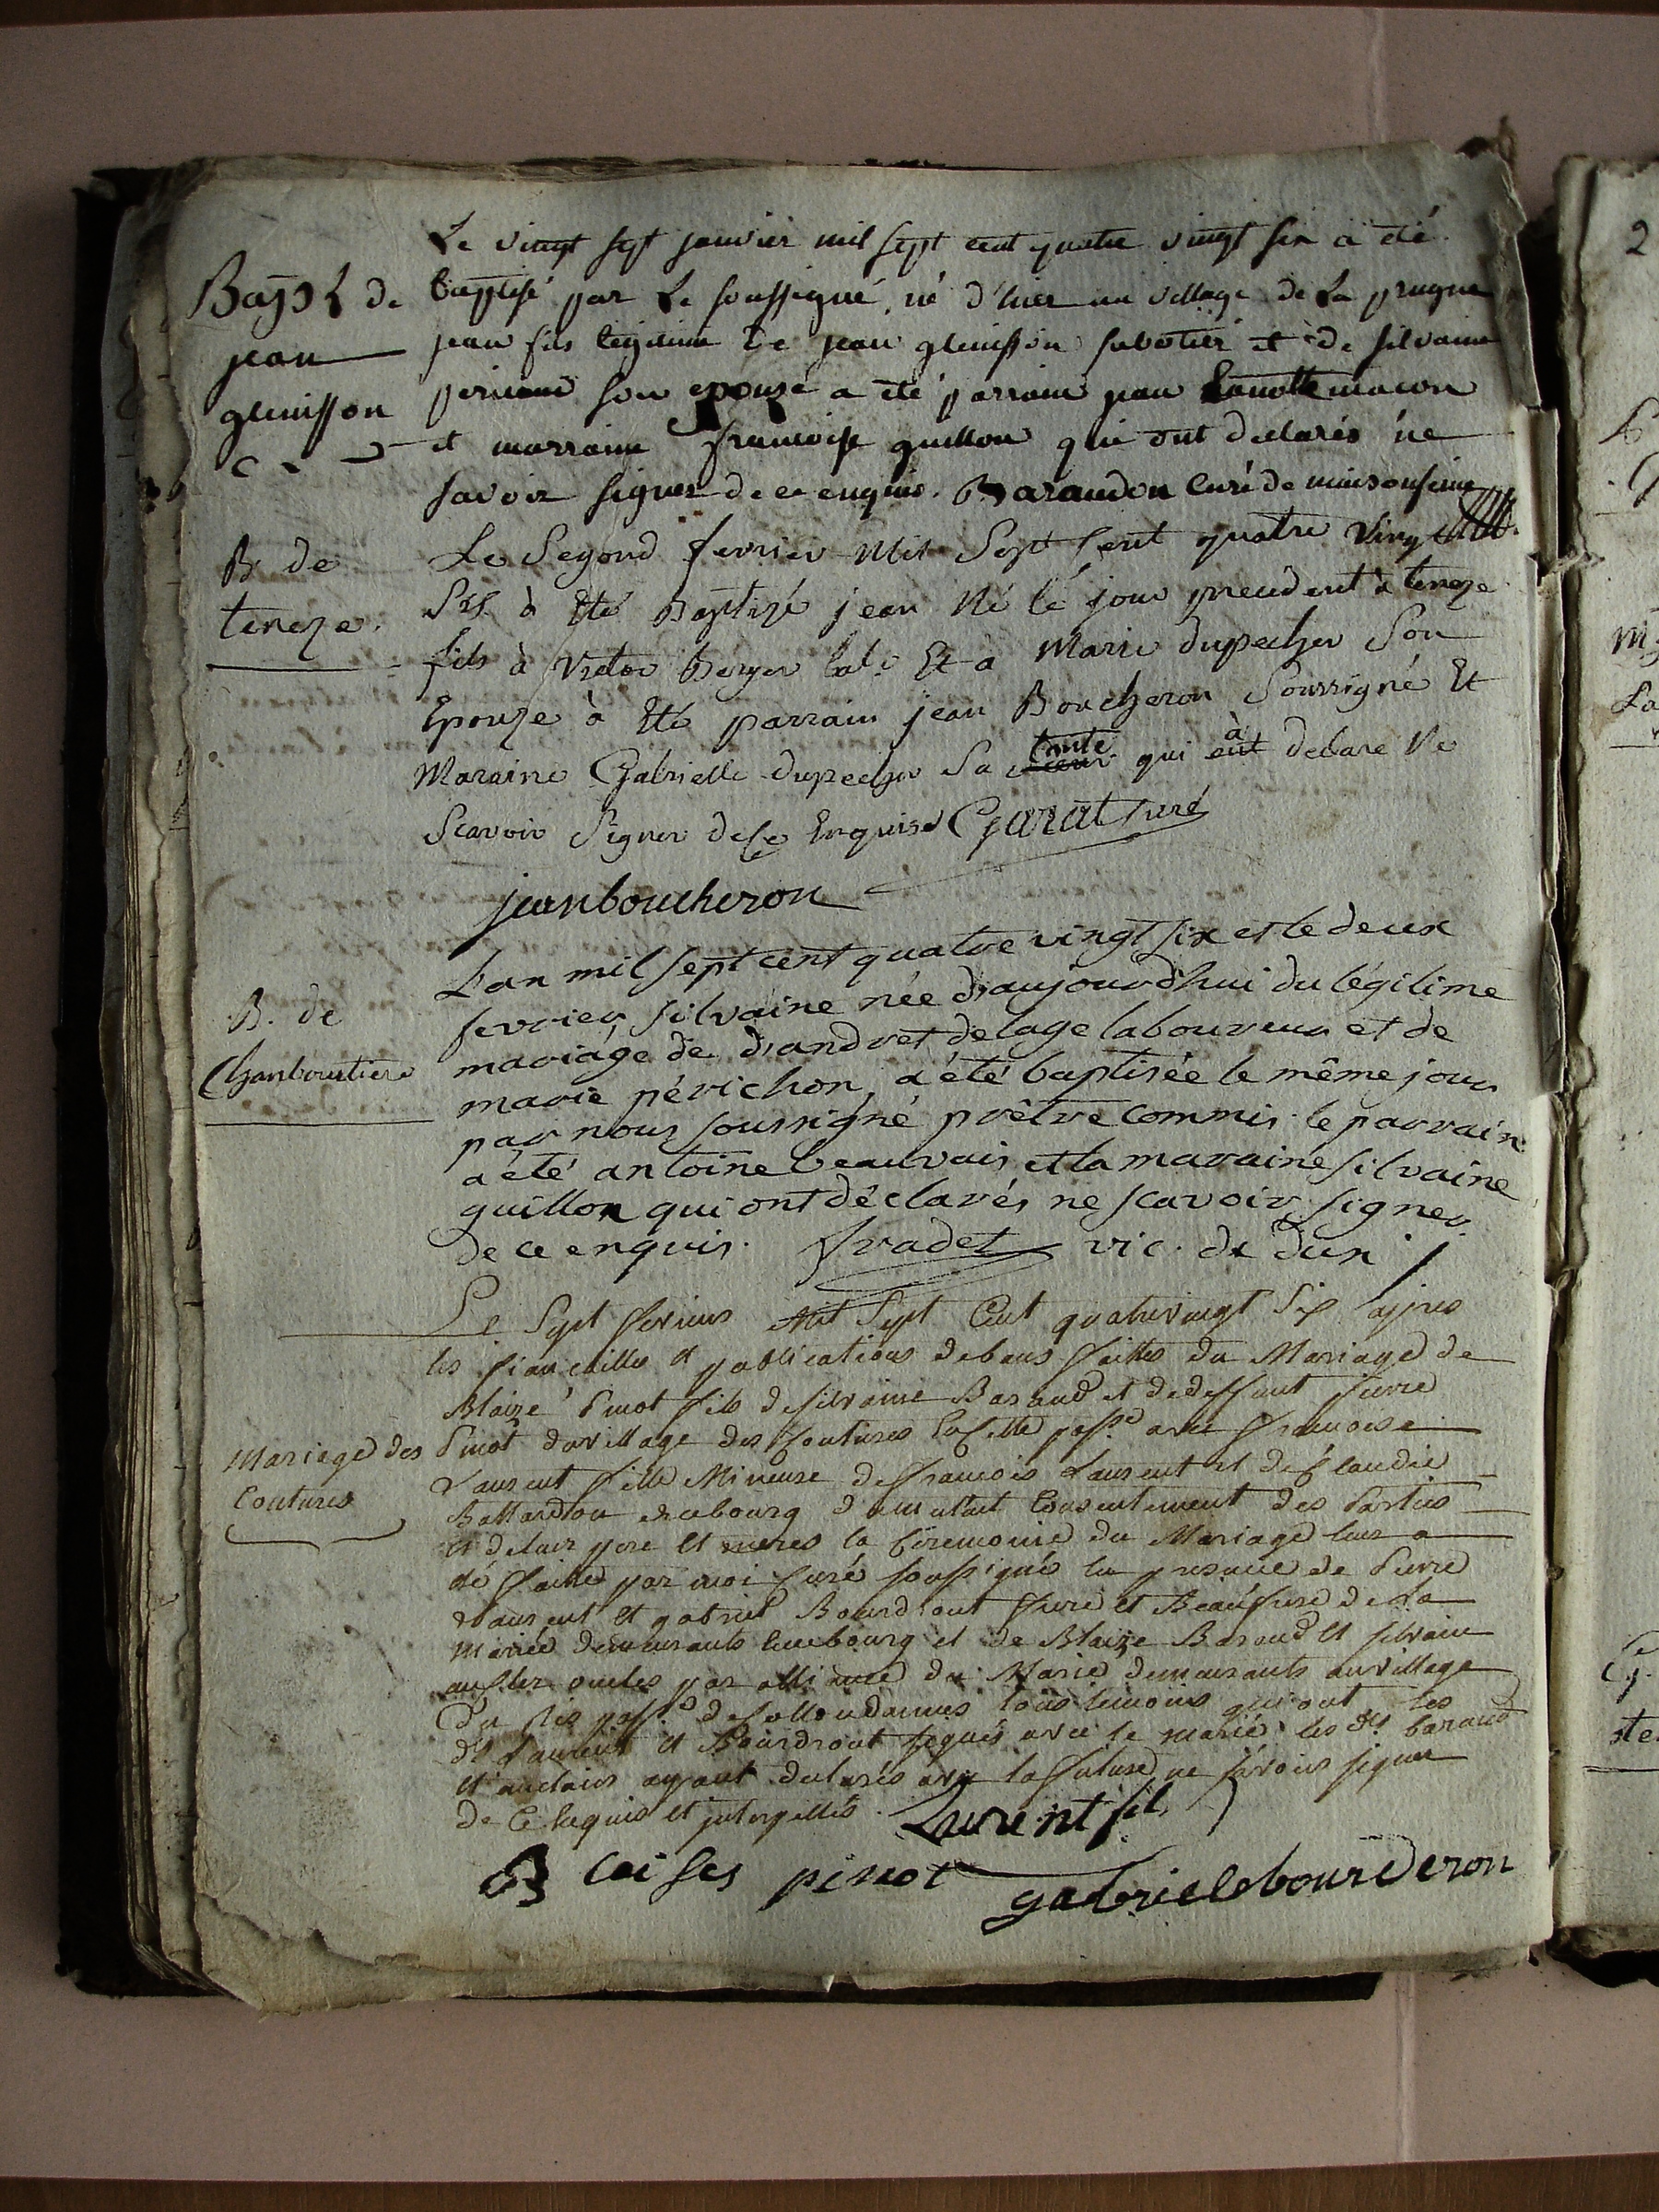 Le vingt sept janvier mil sept cent quatre vingt six a été
Bapt de
baptisé par Le soussigné, né d'hier au village de La prugne
jean
jean fils legitime de jean glenisson sabotier et de silvaine
glenisson
son epouse a été parrain jean Lamotte macon
et marraine francoise guillon qui ont declarés ne
savoir signer de ce enquis. Barandon curé de maisonfeine
B. de
Le Segond fevrier Mil Sept Cent quatre Ving
tereze.
Six à Eté Baptizé jean Né le jour precedent à tereze
fils à Victor berger lab. Et à Marie dupecher Son
Epouze à Eté parrain jean Boucheron Soussigné Et
Maraine Gabrielle dupecher Sa tante qui à declare Ne
Scavoir Signer de Ce Enquise Garat curé
jean boucheron
L'an mil sept cent quatre vingt six et le deux
fevrier, silvaine née d'aujourd'hui du légitime
B. de
mariage de d'andret delage laboureur et de
Chanboutiere
marie périchon, a été baptisée le même jour
par nous soussigné prêtre commis. le parrain
a été antoine beauvais et la maraine silvaine
guillon qui ont déclarés ne scavoir signer
de ce enquis. fradet vic. de dun
Le Sept fevrier Mil Sept Cent quatrevingt Six apres
les fiancailles et publications de bans faittes du Mariage de
Blaize Pinot fils de silvaine Baraud et de deffunt pierre
Mariage des
Pinot du village des Coutures par.sse avec francoise
Coutures
Laurent fille Mineure de francois Laurent et de Claudie
du bourg du mutuel Consentement des Parties
et de leur pere et meres la Ceremonie du Mariage leur a
été faitte par moi Curé soussigné en presance de Pierre
Laurent et gabriel Bourdront frere et Beaufrere de La
Mariée demeurants en ce bourg et de Blaize Baraud et silvain
oncles par alliance du Marié demeurants au village
du par.sse de tous temoins qui ont les
d.ts Laurent et Bourdront signés avec le marié. les d.ts baraud
et ayant declarés avec la future ne sçavoir signer
de Ce Enquis et interpellés. Laurent fils
Blaises pinot
gabriele bourderon
2